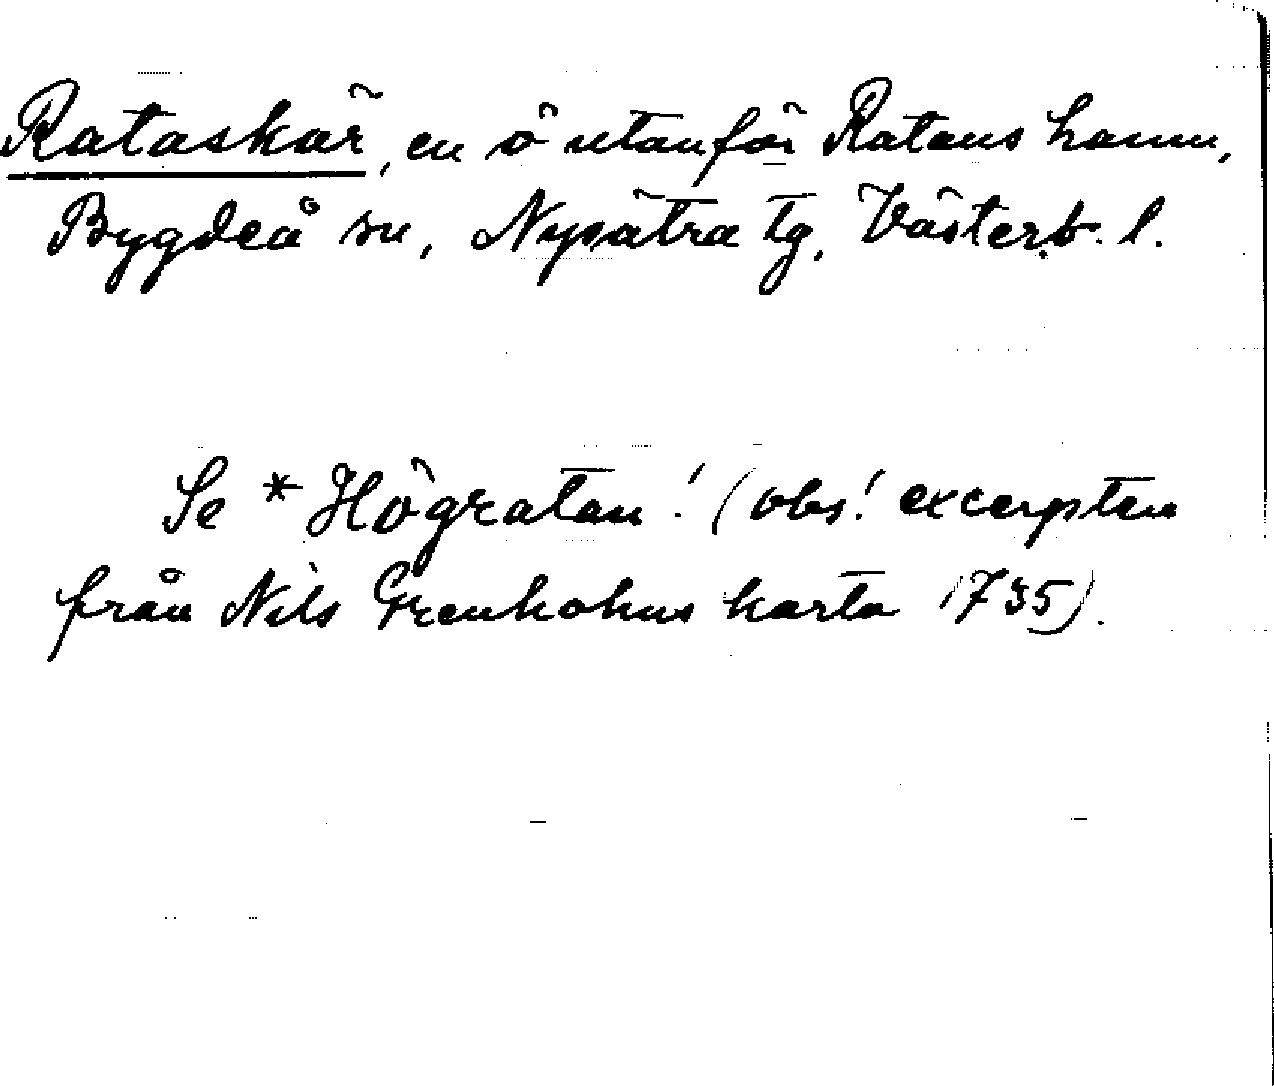 Rataskär, en ö utanför Ratans hamn,
Bygdeå sn, Nysätra tg, Västerb. l.
Se *Högratan! (obs! excerpten
från Nils Grenholms karta 1735).